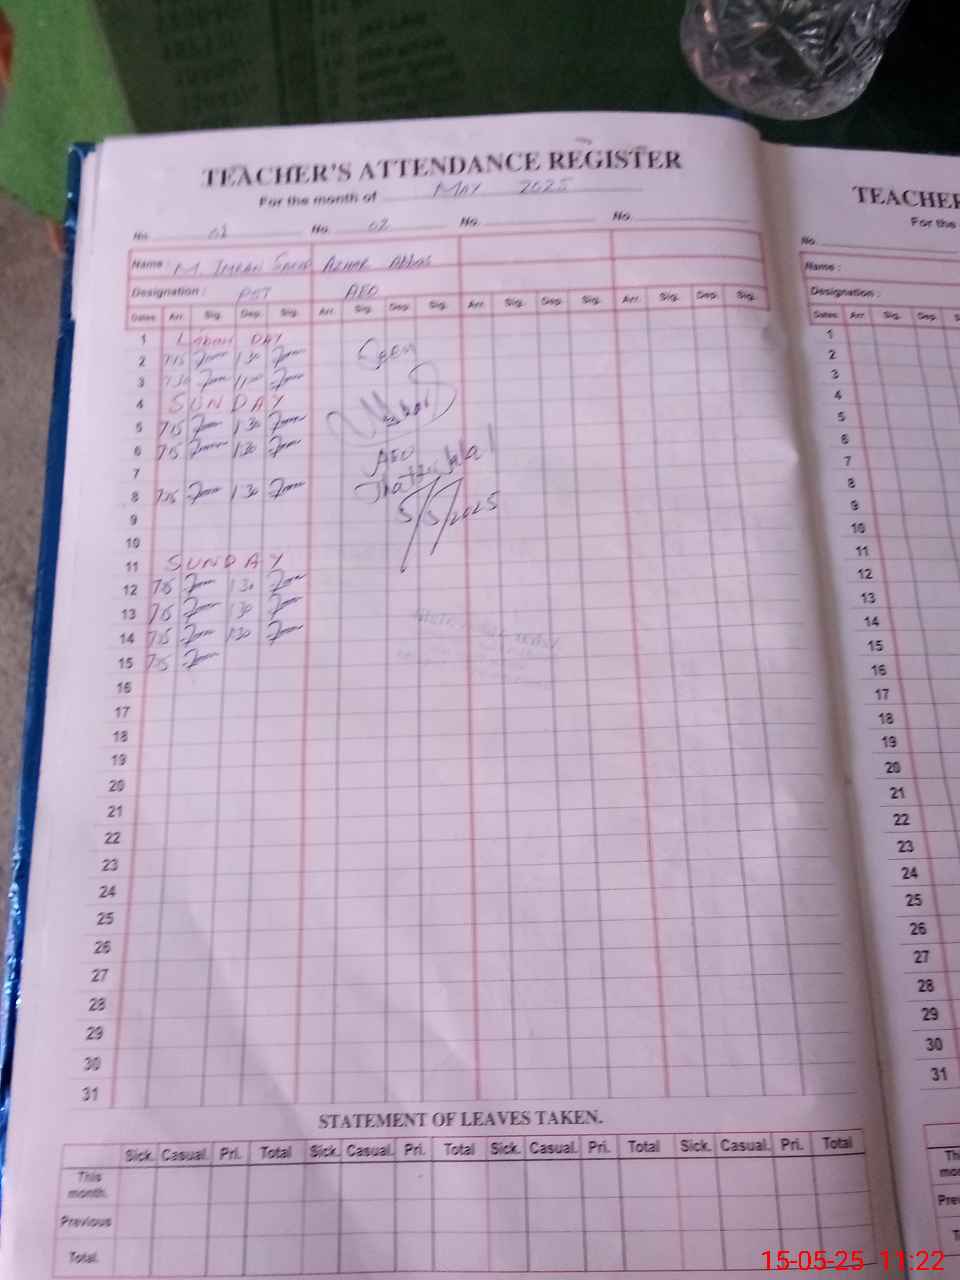 TEACHER'S ATTENDANCE REGISTER
For the month of MAY 2025
No. 01 No. 02 No. No.
Name : M. IMRAN AZHAR ABBAS
Designation : PST AEO
Dates Arr. Sig. Dep. Sig. Arr. Sig. Dep. Sig. Arr. Sig. Dep. Sig. Arr. Sig. Dep. Sig.
1 Labour DAY
2 715 130 Seen
3 730
4 SUNDAY
5 715 130
6 715 130 AEO
7
8 715 130 5/5/2025
9
10
11 SUNDAY
12 715 130
13 715 130
14 715 130
15 715
16
17
18
19
20
21
22
23
24
25
26
27
28
29
30
31
STATEMENT OF LEAVES TAKEN.
Sick. Casual. Pri. Total Sick. Casual. Pri. Total Sick. Casual. Pri. Total Sick. Casual. Pri. Total
This month.
Previous
Total.
TEACHER
For the
No.
Name :
Designation :
Dates Arr. Sig. Dep.
1
2
3
4
5
6
7
8
9
10
11
12
13
14
15
16
17
18
19
20
21
22
23
24
25
26
27
28
29
30
31
15-05-25 11:22